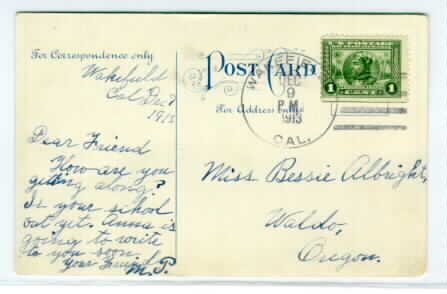 For Correspondence only
POST CARD
For Address only
Wakefield
Cal Dec 9
1913
WAKEFIELD
DEC
9
P.M.
1913
CAL.
U.S. POSTAGE
1 CENT 1
Dear Friend
How are you
getting along?
Is your school
out yet. Anna is
going to write
to you soon.
Your Friend
M.P.
Miss Bessie Albright,
Waldo,
Oregon.